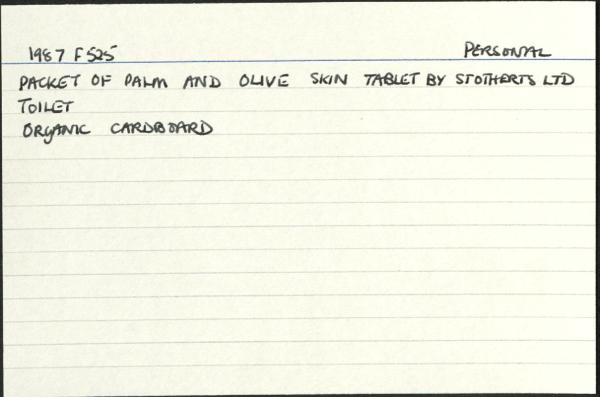 1987 F525 PERSONAL
PACKET OF PALM AND OLIVE SKIN TABLET BY STOTHERTS LTD
TOILET
ORGANIC CARDBOARD